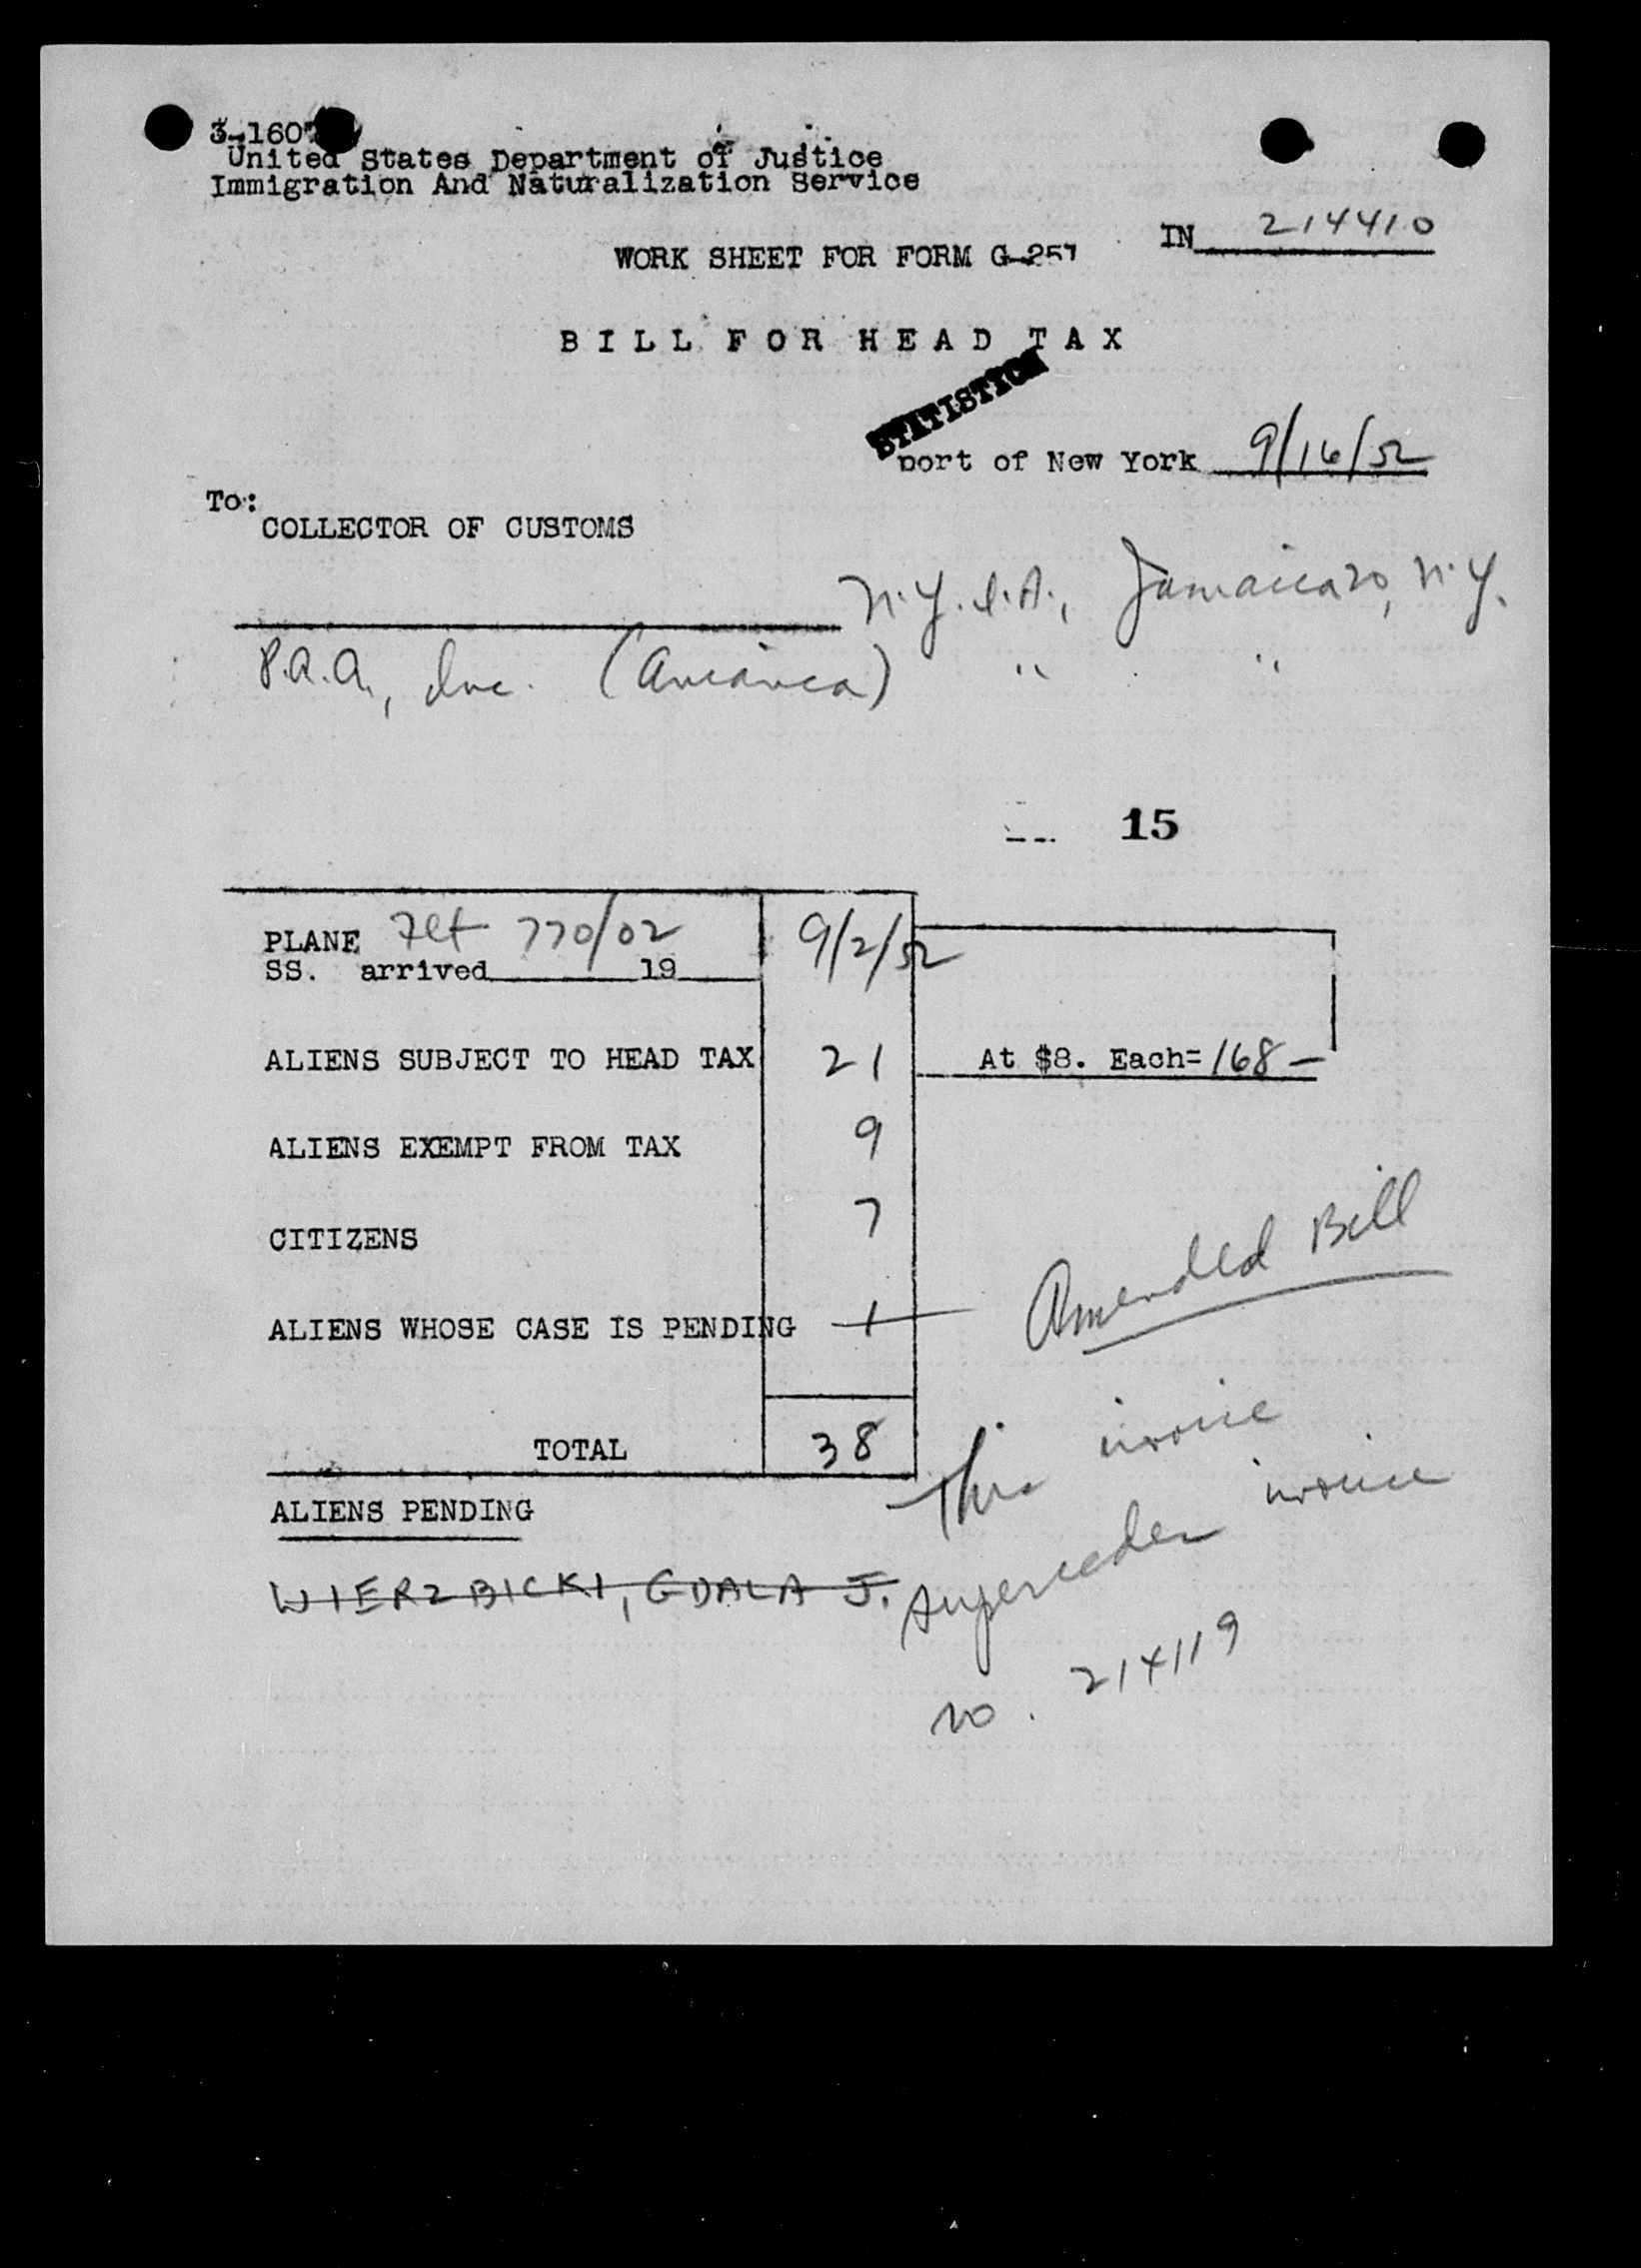 3-160
United States Department of Justice
Immigration And Naturalization Service
IN 214410
WORK SHEET FOR FORM G-257
BILL FOR HEAD TAX
STATISTICS
port of New York 9/16/52
To:
COLLECTOR OF CUSTOMS
N.Y.I.A., Jamaica 20, N.Y.
P.A.A., Inc. (Avianca) " "
15
PLANE Flt 770/02 9/2/52
SS. arrived 19
ALIENS SUBJECT TO HEAD TAX 21 At $8. Each= 168 —
ALIENS EXEMPT FROM TAX 9
CITIZENS 7
ALIENS WHOSE CASE IS PENDING 1
Amended Bill
TOTAL 38
ALIENS PENDING
WIERZBICKI, GDALA J.
This invoice
supersedes invoice
no. 214119